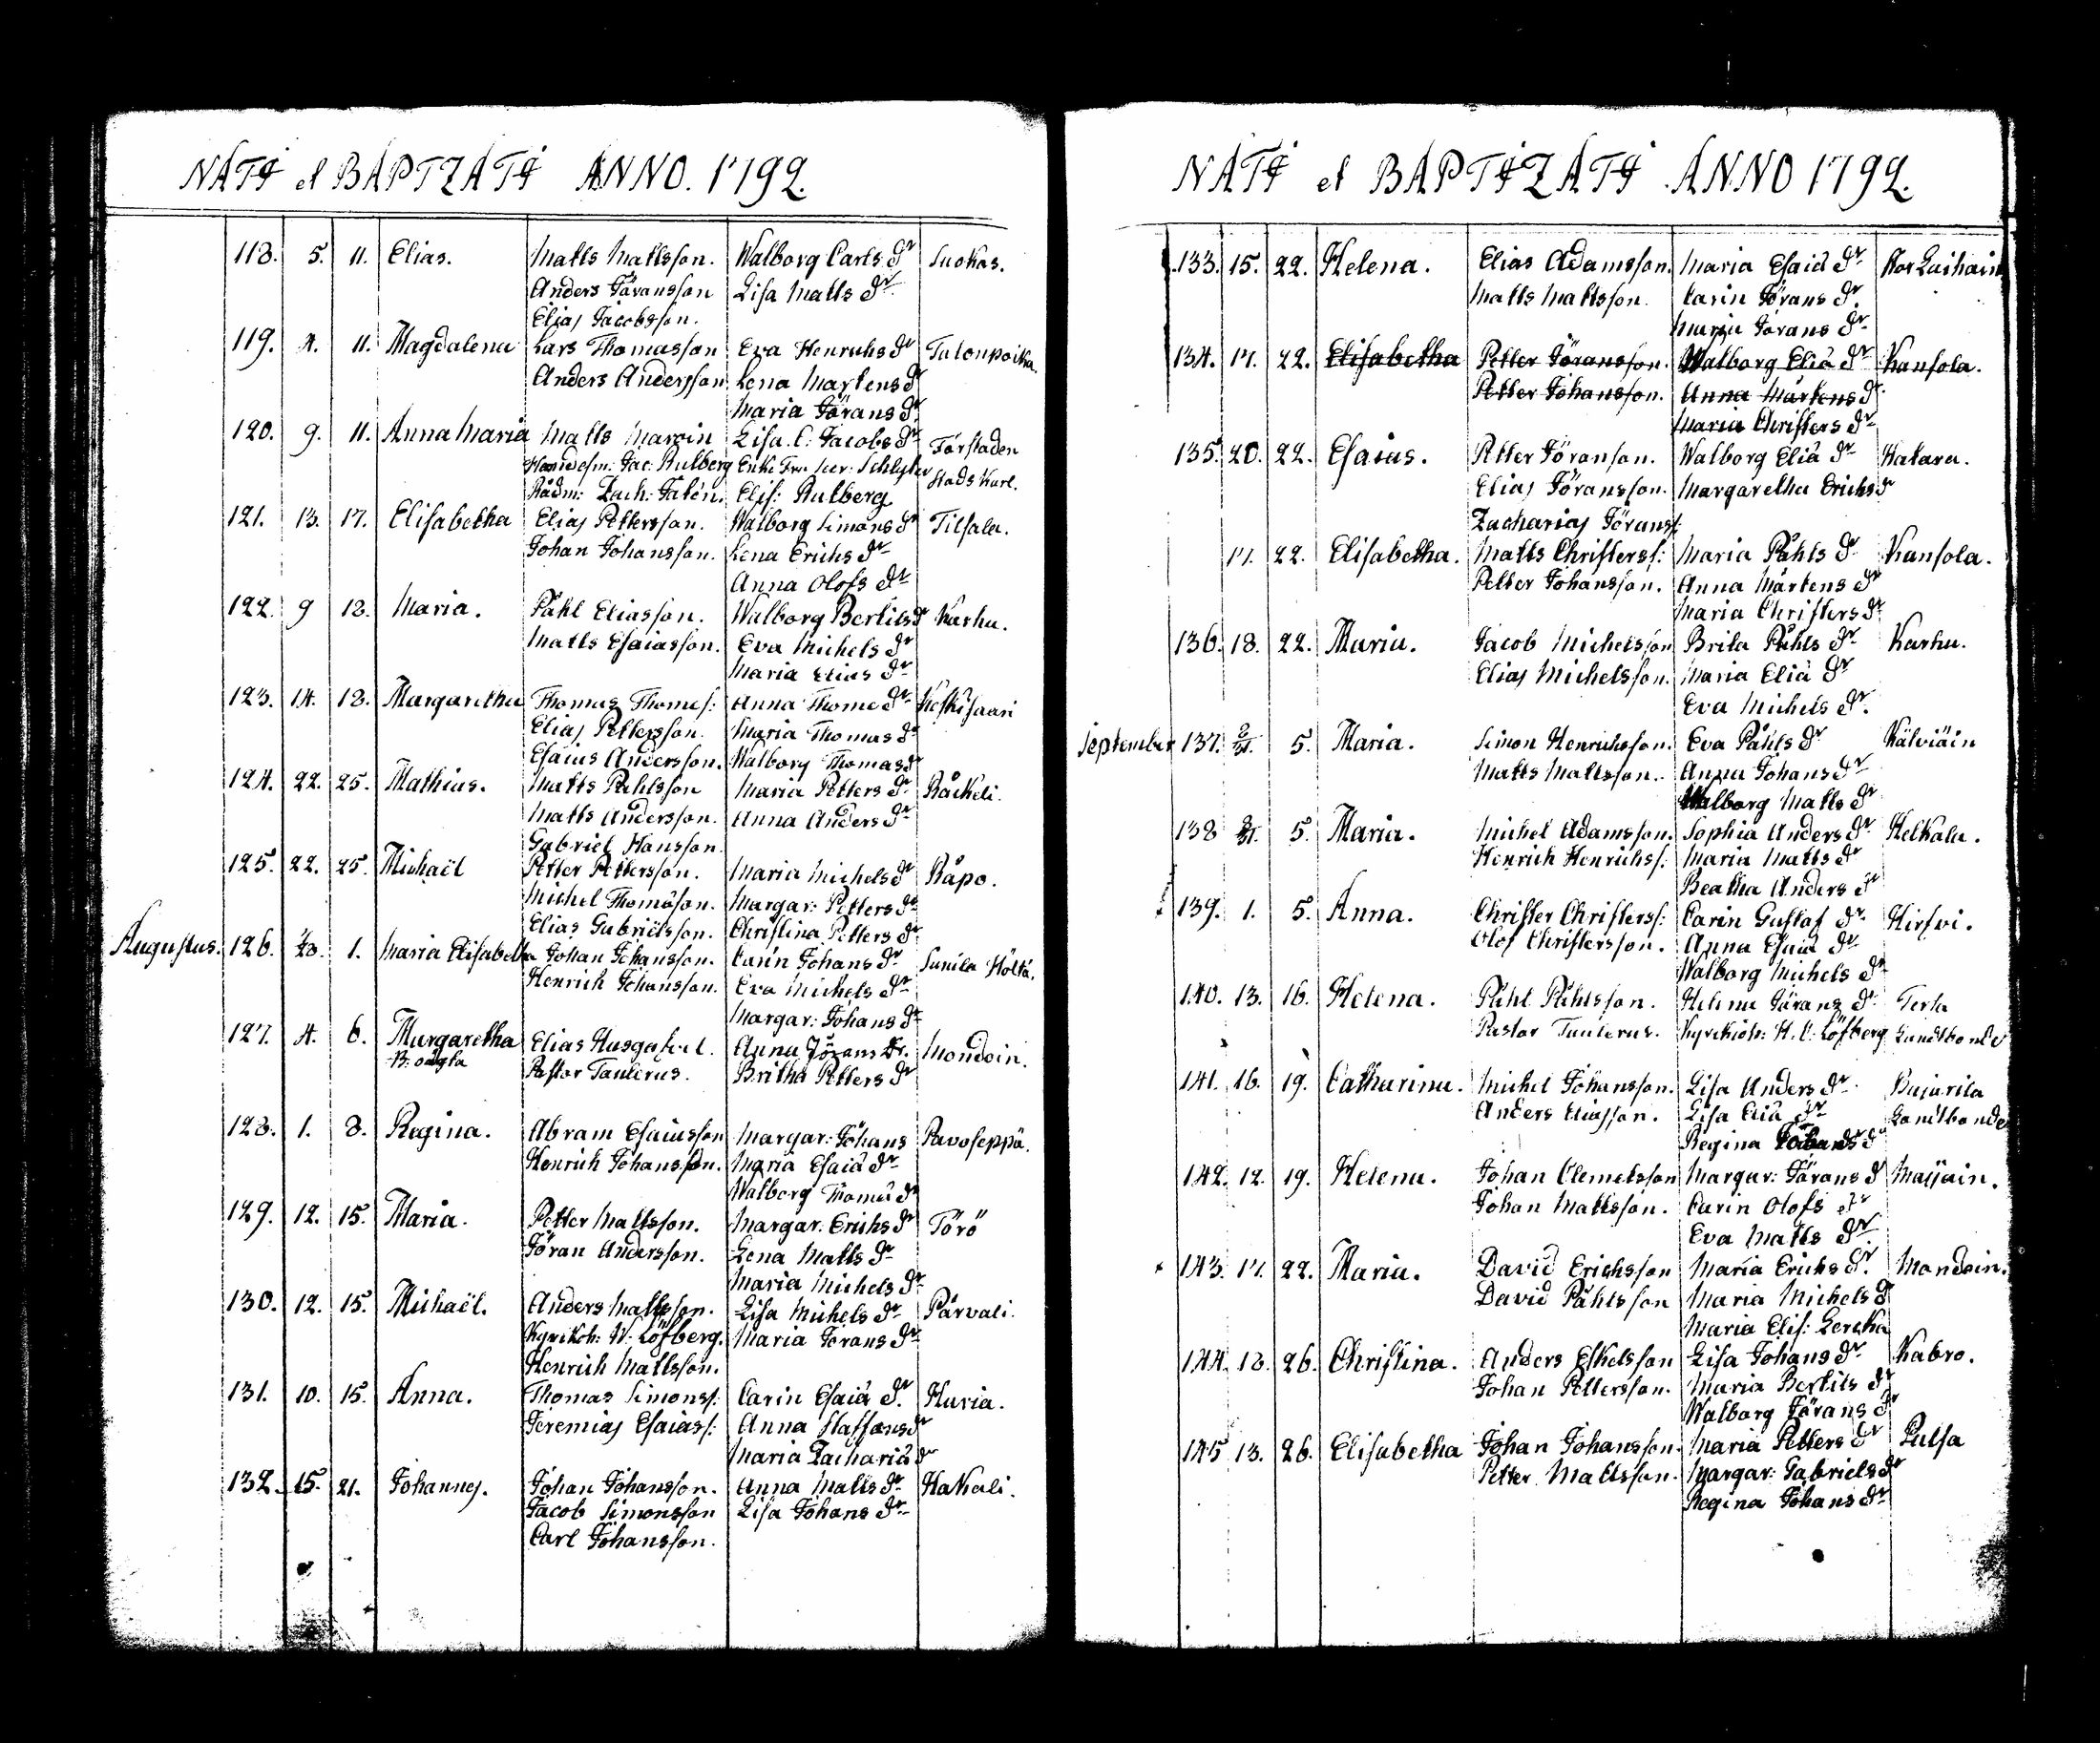 NATI et BAPTZATI ANNO. 1792.
118. 5. 11. Elias. Matts Mattsson. Walborg Carls dr Suokas.
Anders Jöransson Lisa Matts dr
Elias Jacobsson.
119. 4. 11. Magdalena Lars Thomasson Eva Henrichs dr Talonpoika.
Anders Andersson Lena Martens dr
Maria Jörans dr
120. 9. 11. Anna Maria Matts Maroin Lisa C: Jacobs dr Förstaden
Handelsm: Jac: Rulberg Enke Fru Stads Karl.
Rådm: Zach: Elis: Rulberg
121. 13. 17. Elisabetha Elias Pettersson. Walborg Simons dr Tilsala.
Johan Johansson. Lena Erichs dr
Anna Olofs dr
122. 9 18. Maria. Påhl Eliasson. Walborg Bertils dr Karhu.
Matts Esaiasson. Eva Michels dr
Maria Elias dr
123. 14. 18. Margaretha Thomas Thomes: Anna Thome dr Koskisaari
Elias Pettersson. Maria Thomas dr
Esaias Andersson. Walborg Thomas dr
124. 22. 25. Mathias. Matts Påhlsson Maria Petters dr Räikeli.
Matts Andersson. Anna Anders dr
Gabriel Hansson.
125. 22. 25. Michaël Petter Pettersson. Maria Michels dr Råpo.
Michel Thomason. Margar: Petters dr
Elias Gabrielsson. Christina Petters dr
Augustus. 126. 1. Maria Elisabetha Johan Johansson. Carin Johans dr Sunila Hôltå.
Henrich Johansson. Eva Michels dr
Margar: Johans dr
127. 4. 6. Margaretha Elias Husgafvel. Anna Jörans Dr. Mondoin.
B: oägta Pastor Taulerus. Britha Petters dr
128. 1. 8. Regina. Abram Esaiasson Margar: Johans Pavoseppä.
Henrich Johansson. Maria Esaiä dr
Walborg Thomä dr
129. 12. 15. Maria. Petter Mattsson. Margar. Erichs dr Törö
Jöran Andersson. Lena Matts dr
Maria Michels dr
130. 12. 15. Michaël. Anders Mattsson. Lisa Michels dr Pärvali.
Kyrckoh: N: Löfberg. Maria Jörans dr
Henrich Mattsson.
131. 10. 15. Anna. Thomas Simonss: Carin Esaiä dr Huvia.
Jeremias Esaiass: Anna Staffans dr
Maria Zachariä dr
132. 15. 21. Johannes. Johan Johansson. Anna Matts dr Hakali.
Jacob Simonsson Lisa Johans dr
Carl Johansson.
NATI et BAPTIZATI ANNO 1792.
133. 15. 22. Helena. Elias Adamsson. Maria Esaiä dr Kor Laihain
Matts Mattsson. Carin Jörans dr
Maria Jörans dr
134. 17. 22. Elisabetha Petter Jöransson. Walborg Eliä dr Kansola.
Petter Johansson. Anna Mårtens dr
Maria Christers dr
135. 20. 22. Esaias. Petter Jöranson. Walborg Eliä dr Katara.
Elias Jöransson. Margaretha Erichs dr
Zacharias Jöranss:
17. 22. Elisabetha. Matts Christerss: Maria Påhls dr Kansola.
Petter Johansson. Anna Mårtens dr
Maria Christers dr
136. 18. 22. Maria. Jacob Michelsson Brita Påhls dr Karhu.
Elias Michelsson. Maria Eliä dr
Eva Michels dr.
September 137. 5. Maria. Simon Henrichsson. Eva Påhls dr Kälviäin
Matts Mattsson. Anna Johans dr
Walborg Matts dr
138 5. Maria. Michel Adamsson. Sophia Anders dr Helkala.
Henrich Henrichs: Maria Matts dr
Beatha Anders dr
139. 1. 5. Anna. Christer Christerss: Carin Gustaf dr Hirfvi.
Olof Christersson. Anna Esaiä dr
Walborg Michels dr
140. 13. 16. Helena. Påhl Påhlsson. Helena Jörans dr Terla
Pastor Taulerus. Kyrckioh: H. C: Löfberg Landbonde
141. 16. 19. Catharina. Michel Johansson. Lisa Anders dr Pajarila
Anders Eliasson. Lisa Eliä dr Landtbonde
Regina Johans dr
142. 12. 19. Helena. Johan Clemetsson Margar: Jörans dr Maijain.
Johan Mattsson. Carin Olofs dr
Eva Matts dr
143. 17. 22. Maria. David Erichsson Maria Erichs dr. Mondoin.
David Påhlsson Maria Michels dr
Maria Elis: Lercka
144. 18. 26. Christina. Anders Eskelsson Lisa Johans dr Kabro.
Johan Pettersson. Maria Bertils dr
Walborg Jörans dr
145 13. 26. Elisabetha Johan Johansson. Maria Petters dr Pulsa
Petter Mattsson. Margar: Gabriels dr
Regina Johans dr